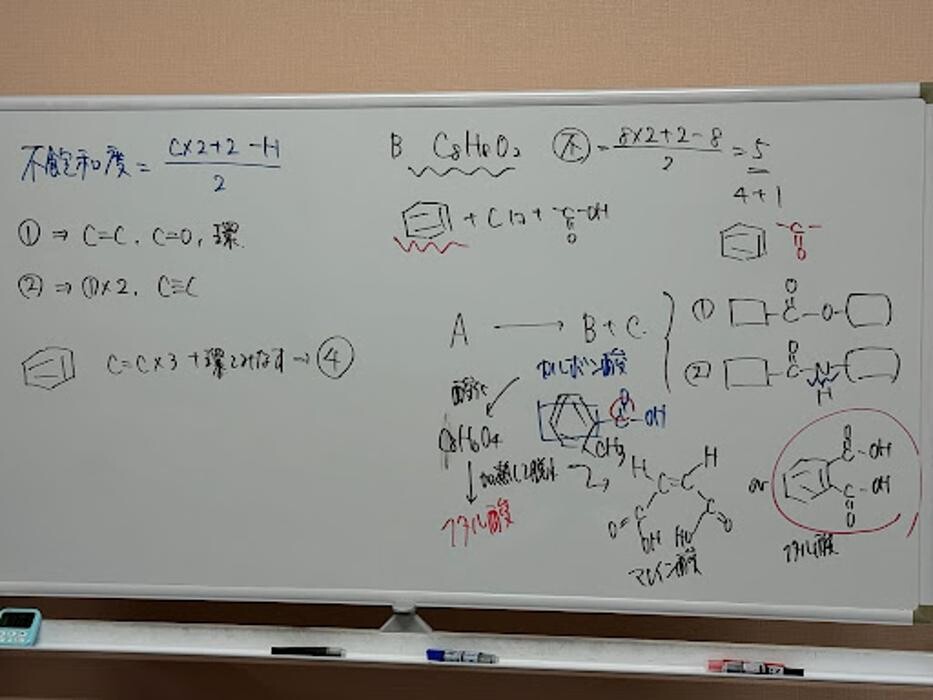 不飽和度 = C×2+2-H / 2
① ⇒ C=C, C=O, 環
② ⇒ ①×2, C≡C
C=C×3 + 環とみなす → ④
B C8H8O2 不 = 8×2+2-8 / 2 = 5
4+1
+ C1コ + -C-OH
O
-C-
O
A → B + C
カルボン酸
酸化
C8H6O4
加熱して脱水
フタル酸
C-OH
CH3
① O
C-O-
② O
C-N-
H
H H
C=C
O=C C=O
OH HO
マレイン酸
or
O
C-OH
C-OH
O
フタル酸